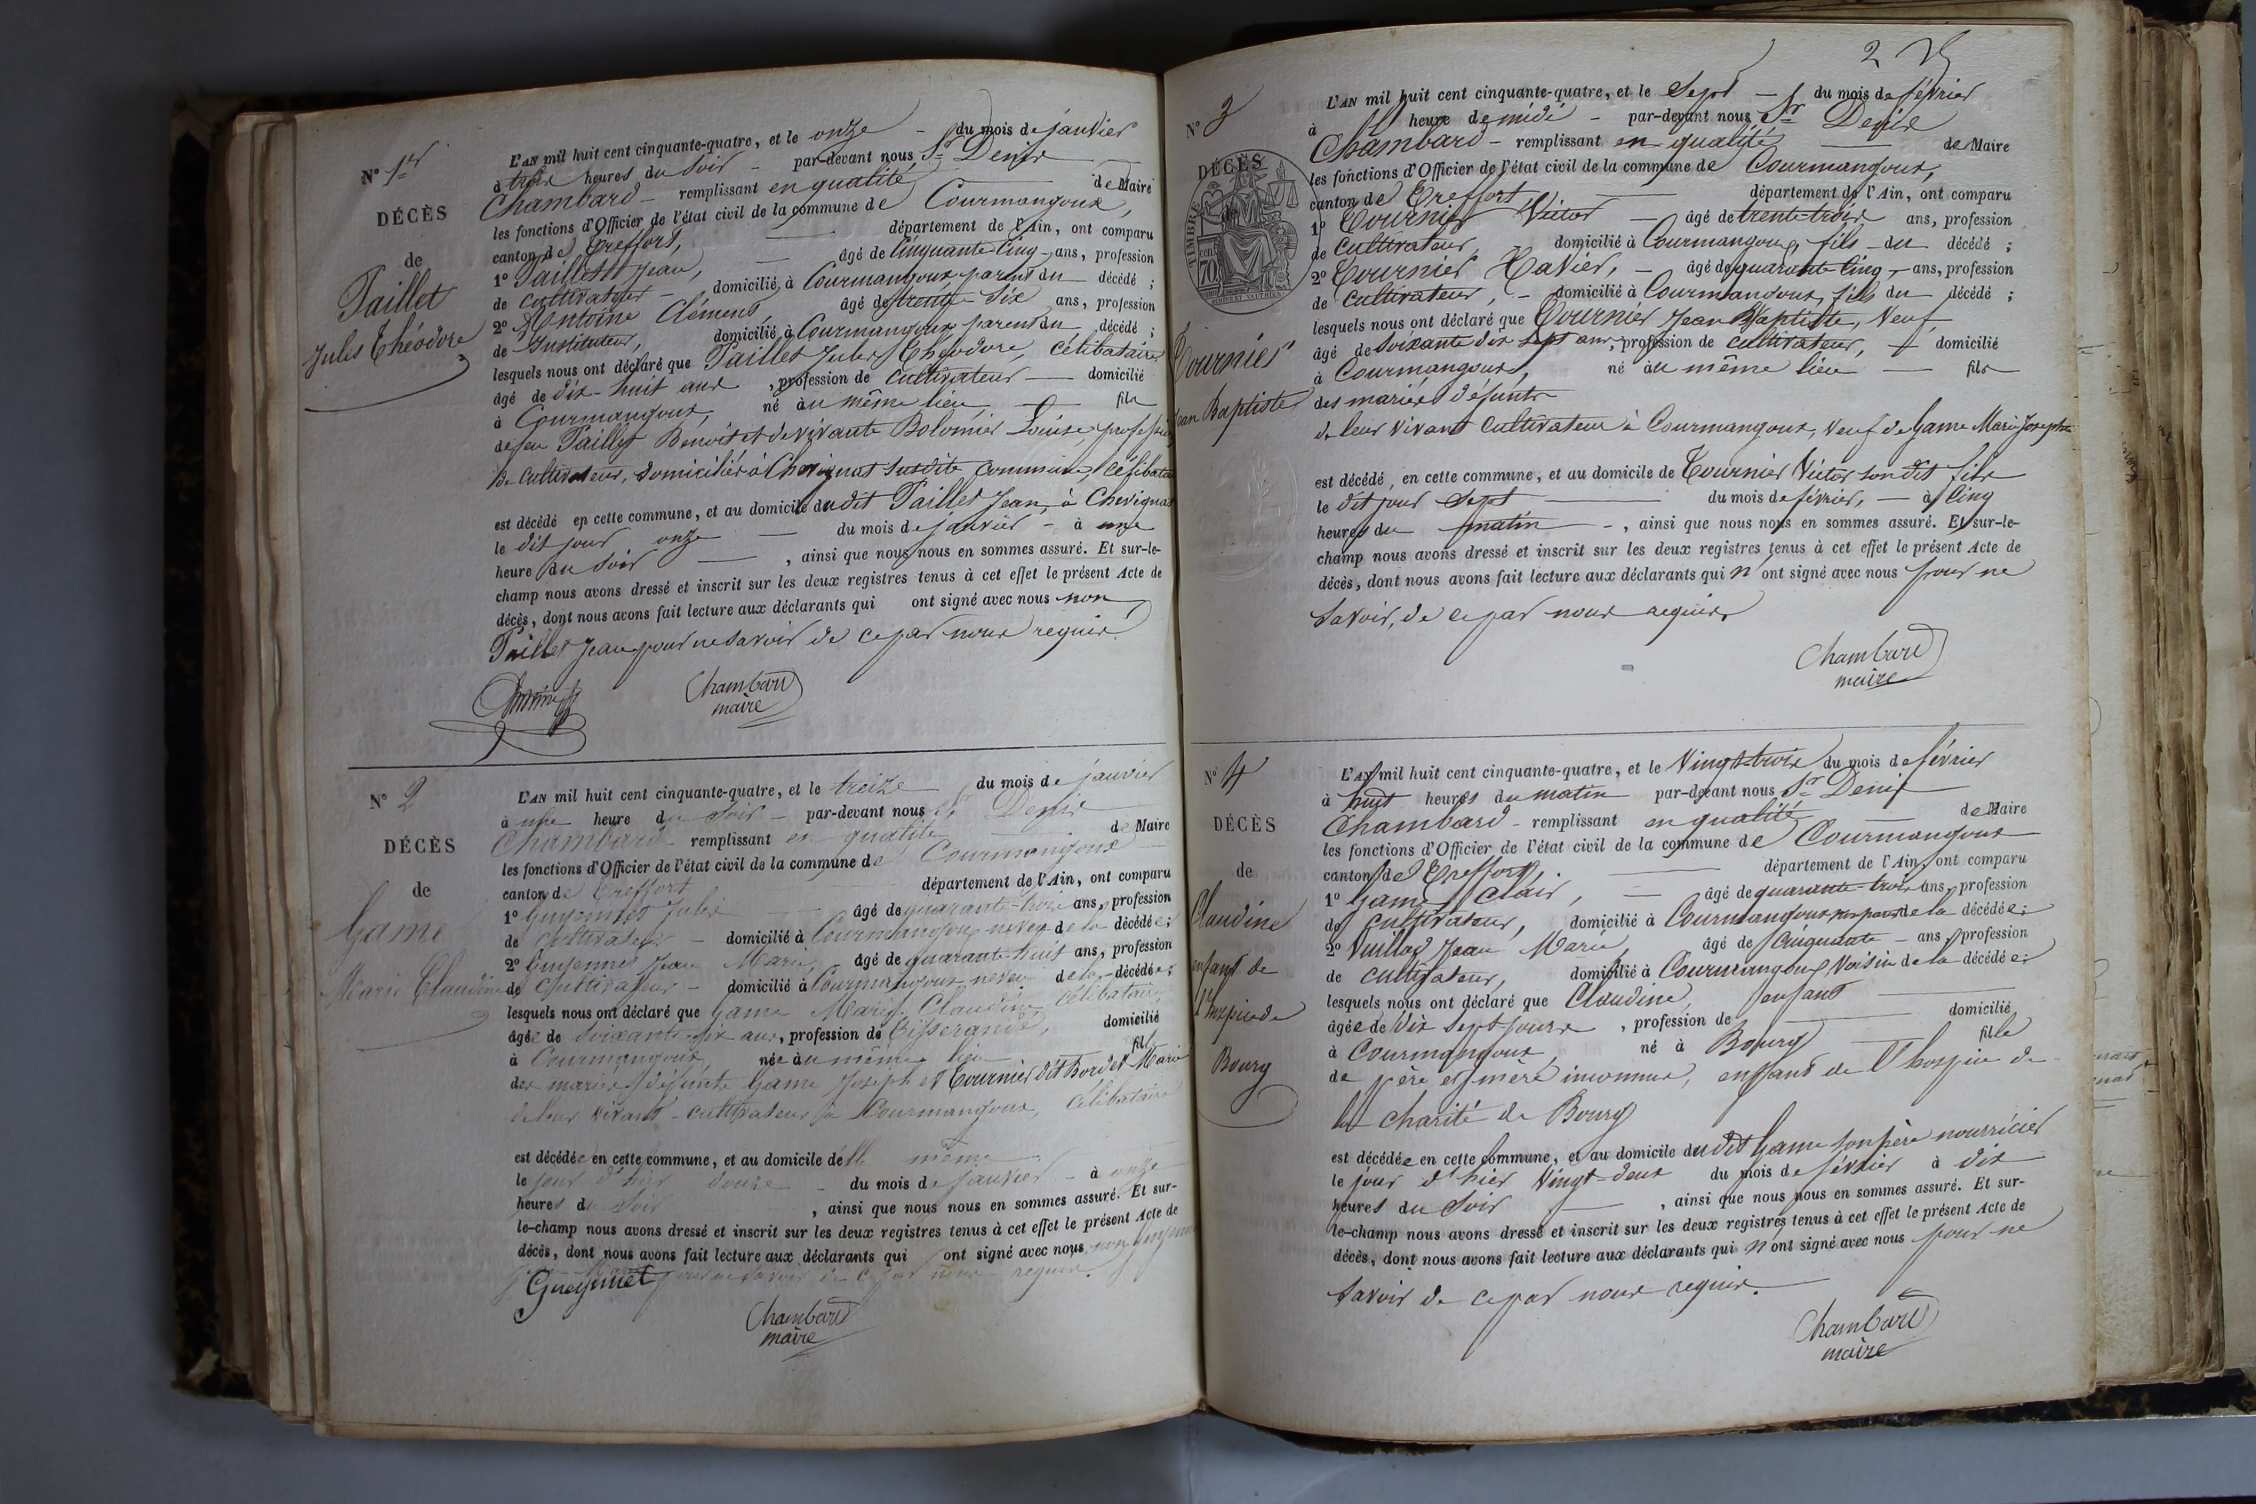 N° 1er
DÉCÈS
de
Paillet
Jules Théodore
L'AN mil huit cent cinquante-quatre, et le onze du mois de janvier
à trois heures du soir par-devant nous Sr Denis
Chambard remplissant en qualité de Maire
les fonctions d'Officier de l'état civil de la commune de Courmangoux,
canton de Treffort, département de l'Ain, ont comparu
1° Paillet Jean, âgé de cinquante-cinq ans, profession
de cultivateur domicilié à Courmangoux parent du décédé ;
2° Antoine Clément âgé de trente six ans, profession
de Instituteur, domicilié à Courmangoux parent du décédé ;
lesquels nous ont déclaré que Paillet Jules Théodore, célibataire
âgé de dix-huit ans, profession de cultivateur domicilié
à Courmangoux, né au même lieu fils
de feu Paillet Benoit et de vivante Bolomier Louise, profession
de cultivateurs, domiciliés à Chevignat susdite commune, célibataire
est décédé en cette commune, et au domicile dudit Paillet Jean, à Chevignat
le dit jour onze du mois de janvier à une
heure du soir, ainsi que nous nous en sommes assuré. Et sur-le-
champ nous avons dressé et inscrit sur les deux registres tenus à cet effet le présent Acte de
décès, dont nous avons fait lecture aux déclarants qui ont signé avec nous non
Paillet Jean pour ne savoir de ce par nous requis.
Chambard
maire
N° 2
DÉCÈS
de
Game
Marie Claudine
L'AN mil huit cent cinquante-quatre, et le treize du mois de janvier
à une heure du soir par-devant nous Sr Denis
Chambard remplissant en qualité de Maire
les fonctions d'Officier de l'état civil de la commune de Courmangoux
canton de Treffort département de l'Ain, ont comparu
1° Guyennet Jules âgé de quarante-trois ans, profession
de cultivateur domicilié à Courmangoux neveu de la décédée ;
2° Guyennet Jean Marie, âgé de quarante-huit ans, profession
de cultivateur domicilié à Courmangoux neveu de la décédée ;
lesquels nous ont déclaré que Game Marie Claudine célibataire
âgée de soixante-six ans, profession de tisserande, domicilié
à Courmangoux, née au même lieu fille
des mariés défunts Game Joseph et Tournier dit Bordet Marie
de leur vivant cultivateurs à Courmangoux, célibataire
est décédée en cette commune, et au domicile d'elle même
le jour d'hier douze du mois de janvier à onze
heures du soir, ainsi que nous nous en sommes assuré. Et sur-
le-champ nous avons dressé et inscrit sur les deux registres tenus à cet effet le présent Acte de
décès, dont nous avons fait lecture aux déclarants qui ont signé avec nous non
pour ne savoir de ce par nous requis.
Chambard
maire
2
N° 3
DÉCÈS
TIMBRE
70
Tournier
Jean Baptiste
L'AN mil huit cent cinquante-quatre, et le sept du mois de février
à heure de midi par-devant nous Sr Denis
Chambard remplissant en qualité de Maire
les fonctions d'Officier de l'état civil de la commune de Courmangoux,
canton de Treffort département de l'Ain, ont comparu
1° Tournier Victor âgé de trente-trois ans, profession
de cultivateur, domicilié à Courmangoux, fils du décédé ;
2° Tournier Xavier, âgé de quarante-cinq ans, profession
de cultivateur, domicilié à Courmangoux, fils du décédé ;
lesquels nous ont déclaré que Tournier Jean Baptiste, veuf
âgé de soixante dix sept ans, profession de cultivateur, domicilié
à Courmangoux, né au même lieu fils
des mariés défunts
de leur vivant cultivateur à Courmangoux, veuf de Game Marie Josephte
est décédé en cette commune, et au domicile de Tournier Victor son dit fils
le dit jour sept du mois de février, à cinq
heures du matin, ainsi que nous nous en sommes assuré. Et sur-le-
champ nous avons dressé et inscrit sur les deux registres tenus à cet effet le présent Acte de
décès, dont nous avons fait lecture aux déclarants qui n'ont signé avec nous pour ne
savoir, de ce par nous requis
Chambard
maire
N° 4
DÉCÈS
de
Claudine
enfant de
l'hospice de
Bourg
L'AN mil huit cent cinquante-quatre, et le vingt-trois du mois de février
à huit heures du matin par-devant nous Sr Denis
Chambard remplissant en qualité de Maire
les fonctions d'Officier de l'état civil de la commune de Courmangoux
canton de Treffort, département de l'Ain, ont comparu
1° Game Clair, âgé de quarante-trois ans, profession
de cultivateur, domicilié à Courmangoux de la décédée ;
2° Vuillod Jean Marie âgé de cinquante ans, profession
de cultivateur, domicilié à Courmangoux voisin de la décédée ;
lesquels nous ont déclaré que Claudine, enfant
âgée de dix sept jours, profession de domicilié
à Courmangoux, né à Bourg fille
de père et mère inconnus, enfant de l'hospice de
la charité de Bourg
est décédée en cette commune, et au domicile dudit Game son père nourricier
le jour d'hier vingt-deux du mois de février à dix
heures du soir, ainsi que nous nous en sommes assuré. Et sur-
le-champ nous avons dressé et inscrit sur les deux registres tenus à cet effet le présent Acte de
décès, dont nous avons fait lecture aux déclarants qui n'ont signé avec nous pour ne
savoir de ce par nous requis.
Chambard
maire